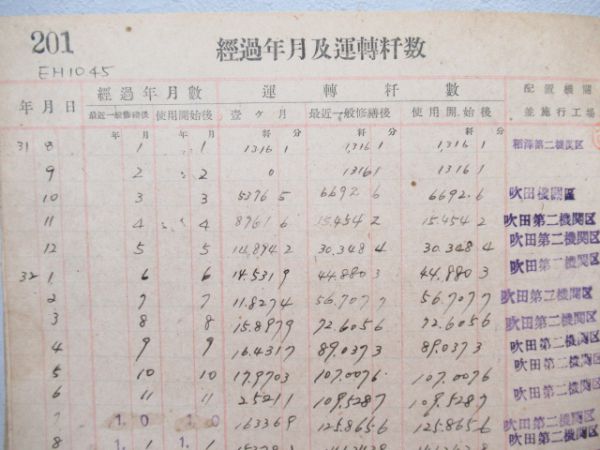 201
經過年月及運轉粁数
EH1045
年月日 經過年月數 運轉粁數 配置機關
最近一般修繕後 使用開始後 壹ヶ月 最近一般修繕後 使用開始後 並施行工場
年 月 年 月 粁 分 粁 分 粁 分
31 8 1 1 1316 1 1,316 1 1,316 1 稲澤第二機関区
9 2 2 0 1316 1 1316 1
10 3 3 5376 5 6692 6 6692.6 吹田機関区
11 4 4 8761 6 15.454 2 15.454 2 吹田第二機関区
12 5 5 14.894 2 30.348 4 30.348 4 吹田第二機関区
32 1 6 6 14.531 9 44.880 3 44.880 3 吹田第二機関区
2 7 7 11.827 4 56.707 7 56.707 7 吹田第二機関区
3 8 8 15.897 9 72.605 6 72.605 6 吹田第二機関区
4 9 9 16.431 7 89.037 3 89.037 3 吹田第二機関区
5 10 10 17.970 3 107.007 6 107.007 6 吹田第二機関区
6 11 11 2.521 1 109.528 7 109.528 7 吹田第二機関区
7 1. 0 1. 0 16336 9 125.865 6 125.865 6 吹田第二機関区
8 1. 1 1. 1 吹田第二機関区